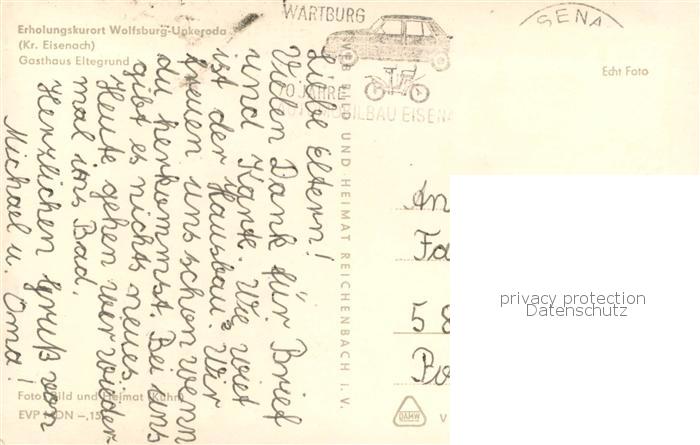 Erholungskurort Wolfsburg-Unkeroda
(Kr. Eisenach)
Gasthaus Eltegrund
WARTBURG
70 JAHRE
AUTOMOBILBAU EISENA
SENA
Echt Foto
Liebe Eltern!
Vielen Dank für Brief
und Karte. Wie weit
ist der Hausbau? Wir
freuen uns schon wenn
du herkommst. Bei uns
gibt es nichts neues.
Heute gehen wir wieder
mal ins Bad.
Herzlichen Gruß von
Michael u. Oma!
VEB BILD UND HEIMAT REICHENBACH I. V.
An
Fa
58
Bo
privacy protection
Datenschutz
Foto: Bild und Heimat (Kühn)
EVP MDN -,15
DAMW
V